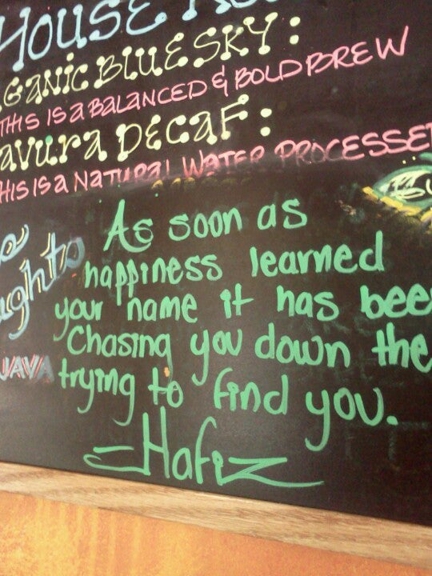 HOUSE
GANIC BLUE SKY:
THIS IS A BALANCED & BOLD BREW
AVURA DECAF:
HIS IS A NATURAL WATER PROCESSE
ughts
JAVA
As soon as
happiness learned
your name it has bee
Chasing you down the
trying to find you.
-Hafiz